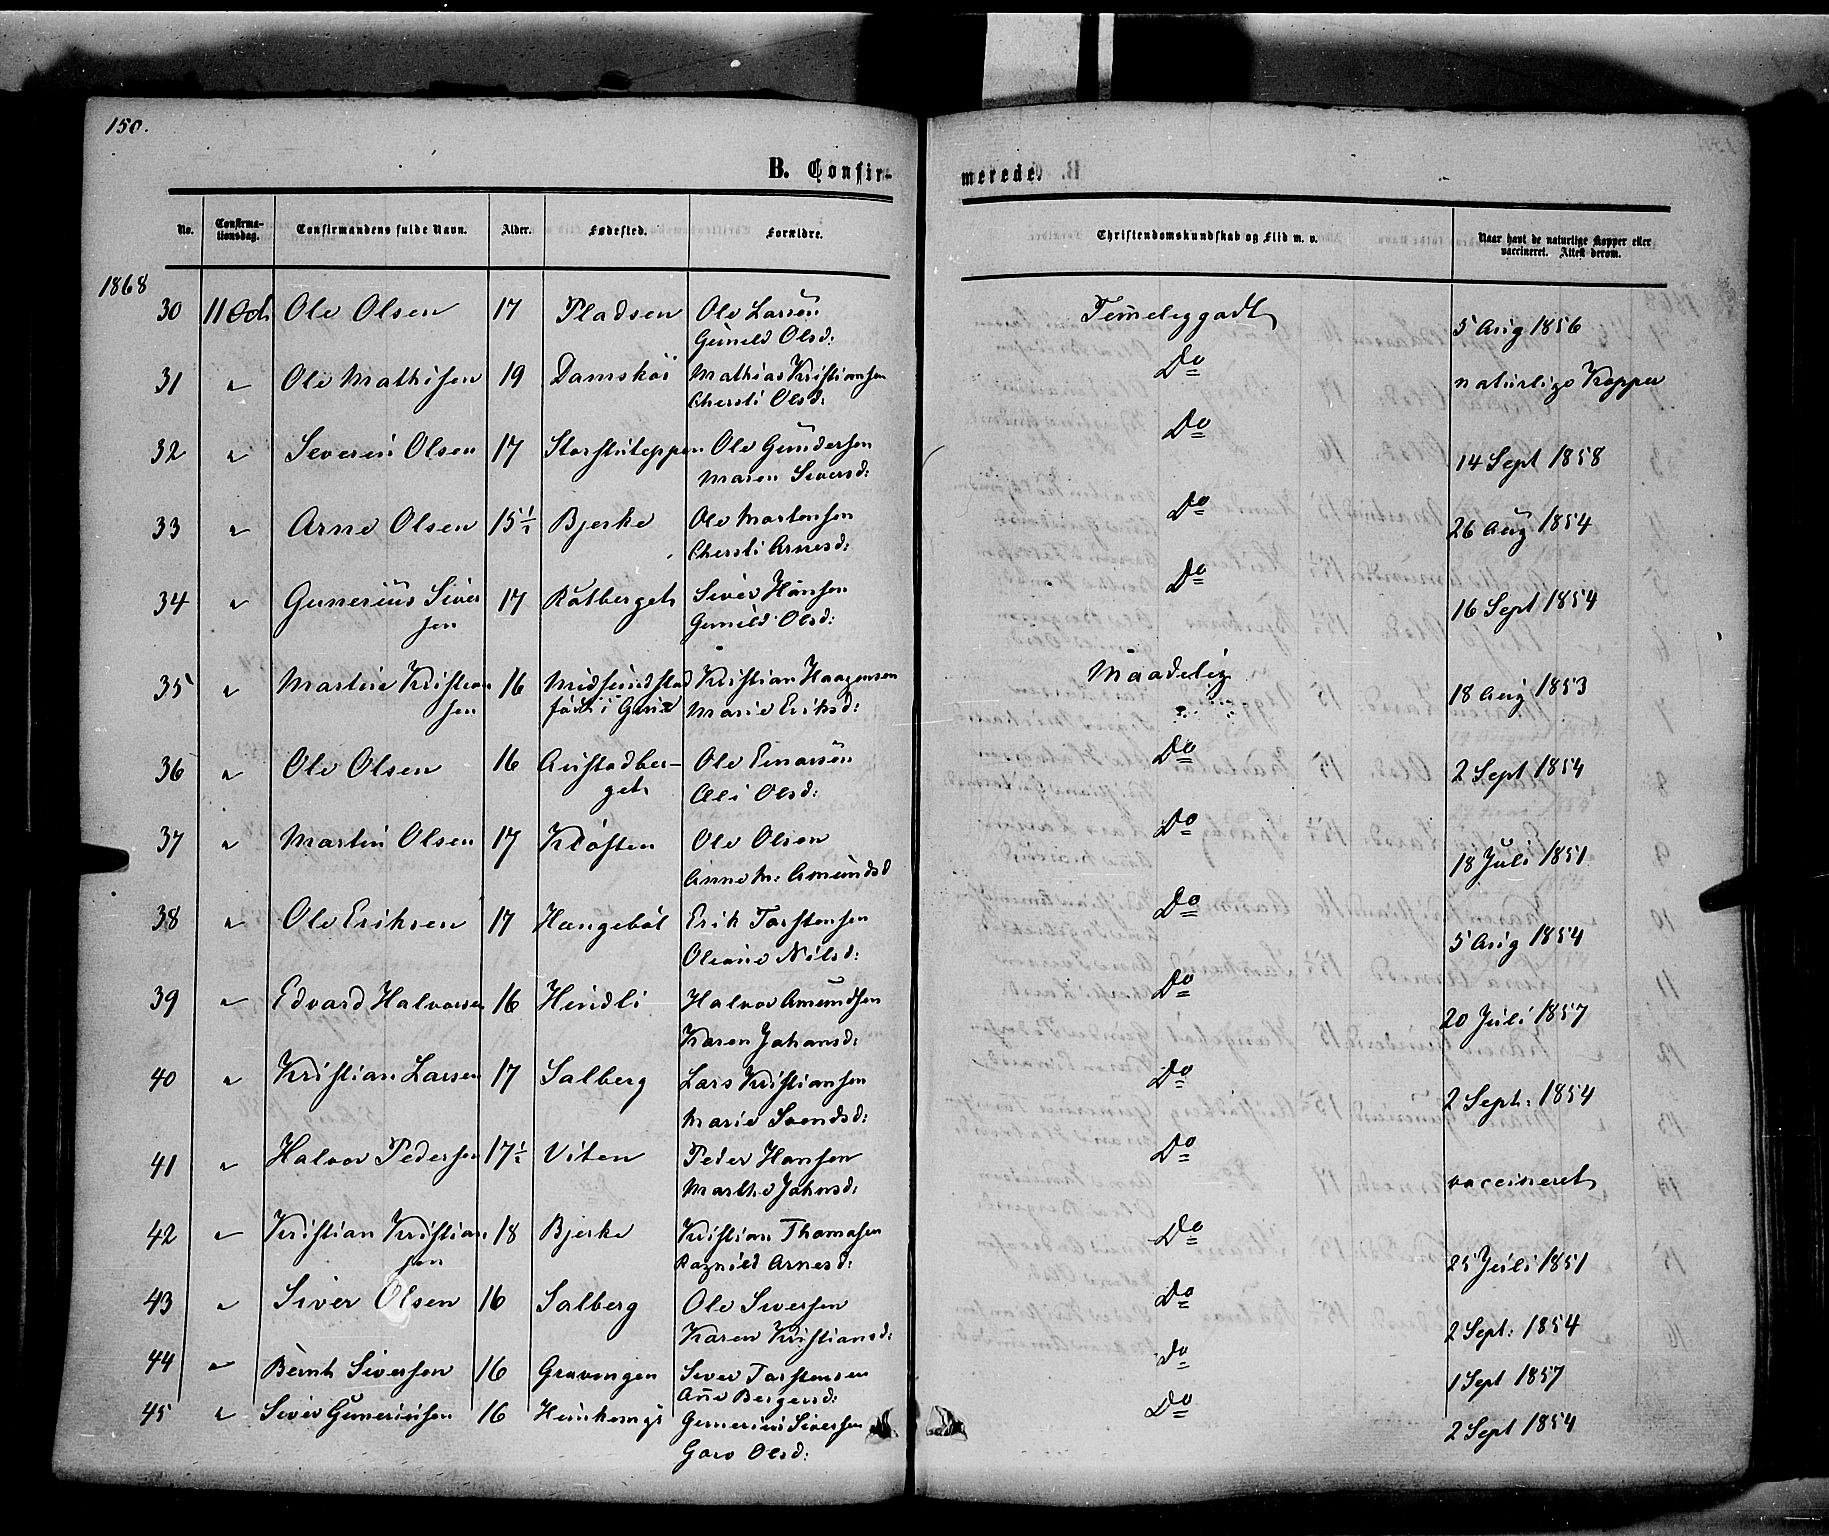 150.
B. Confir-
merede.
No. Confirma-tionsdag. Confirmandens fulde Navn. Alder. Fødested. Forældre. Christendomskundskab og Flid m. v. Naar havt de naturlige Kopper eller vaccineret. Attest derom.
1868
30 11 Oct Ole Olsen 17 Pladsen Ole Larsen Temeliggodt 5 Aug 1856
Gunild Olsd:
31 " Ole Mathisen 19 Damskoi Mathias Kristiansen Do naturlige Kopper
Chersti Olsd:
32 " Severin Olsen 17 Ole Gundersen Do 14 Sept 1858
Maren Siversd:
33 " Arne Olsen 15½ Bjerke Ole Mortensen Do 26 Aug 1854
Chersti Arnesd:
34 " Gunerius Siver 17 Rotberget Siver Hansen Do 16 Sept 1854
sen Gunild Olsd:
35 " Martin Kristian 16 Midsundstad Kristian Haagensen Maadelig 18 Aug 1853
sen født i Marie Eriksd:
36 " Ole Olsen 16 Austadber- Ole Einarsen Do 2 Sept 1854
get Olsd:
37 " Martin Olsen 17 Kloften Ole Olsen Do 18 Juli 1851
Anne M: Amundsd
38 " Ole Eriksen 17 Hangebøl Erik Torstensen Do 5 Aug 1854
Oliane Nilsd:
39 " Edvard Halvorsen 16 Hindli Halvor Amundsen Do 20 Juli 1857
Karen Johansd:
40 " Kristian Larsen 17 Salberg Lars Kristiansen Do 2 Sept: 1854
Marie Svendsd:
41 " Halvor Pedersen 17½ Viten Peder Hansen Do vaccineret
Marthe Johnsd:
42 " Kristian Kristian 18 Bjerke Kristian Thomasen Do 25 Juli 1851
sen Ragnild Arnesd:
43 " Siver Olsen 16 Salberg Ole Siversen Do 2 Sept: 1854
Karen Kristiansd:
44 " Bernt Siversen 16 Gravengen Siver Torstensen Do 1 Sept 1857
Ane Bergersd:
45 " Siver Guneriusen 16 Gunerius Siversen Do 2 Sept 1854
Goro Olsd: